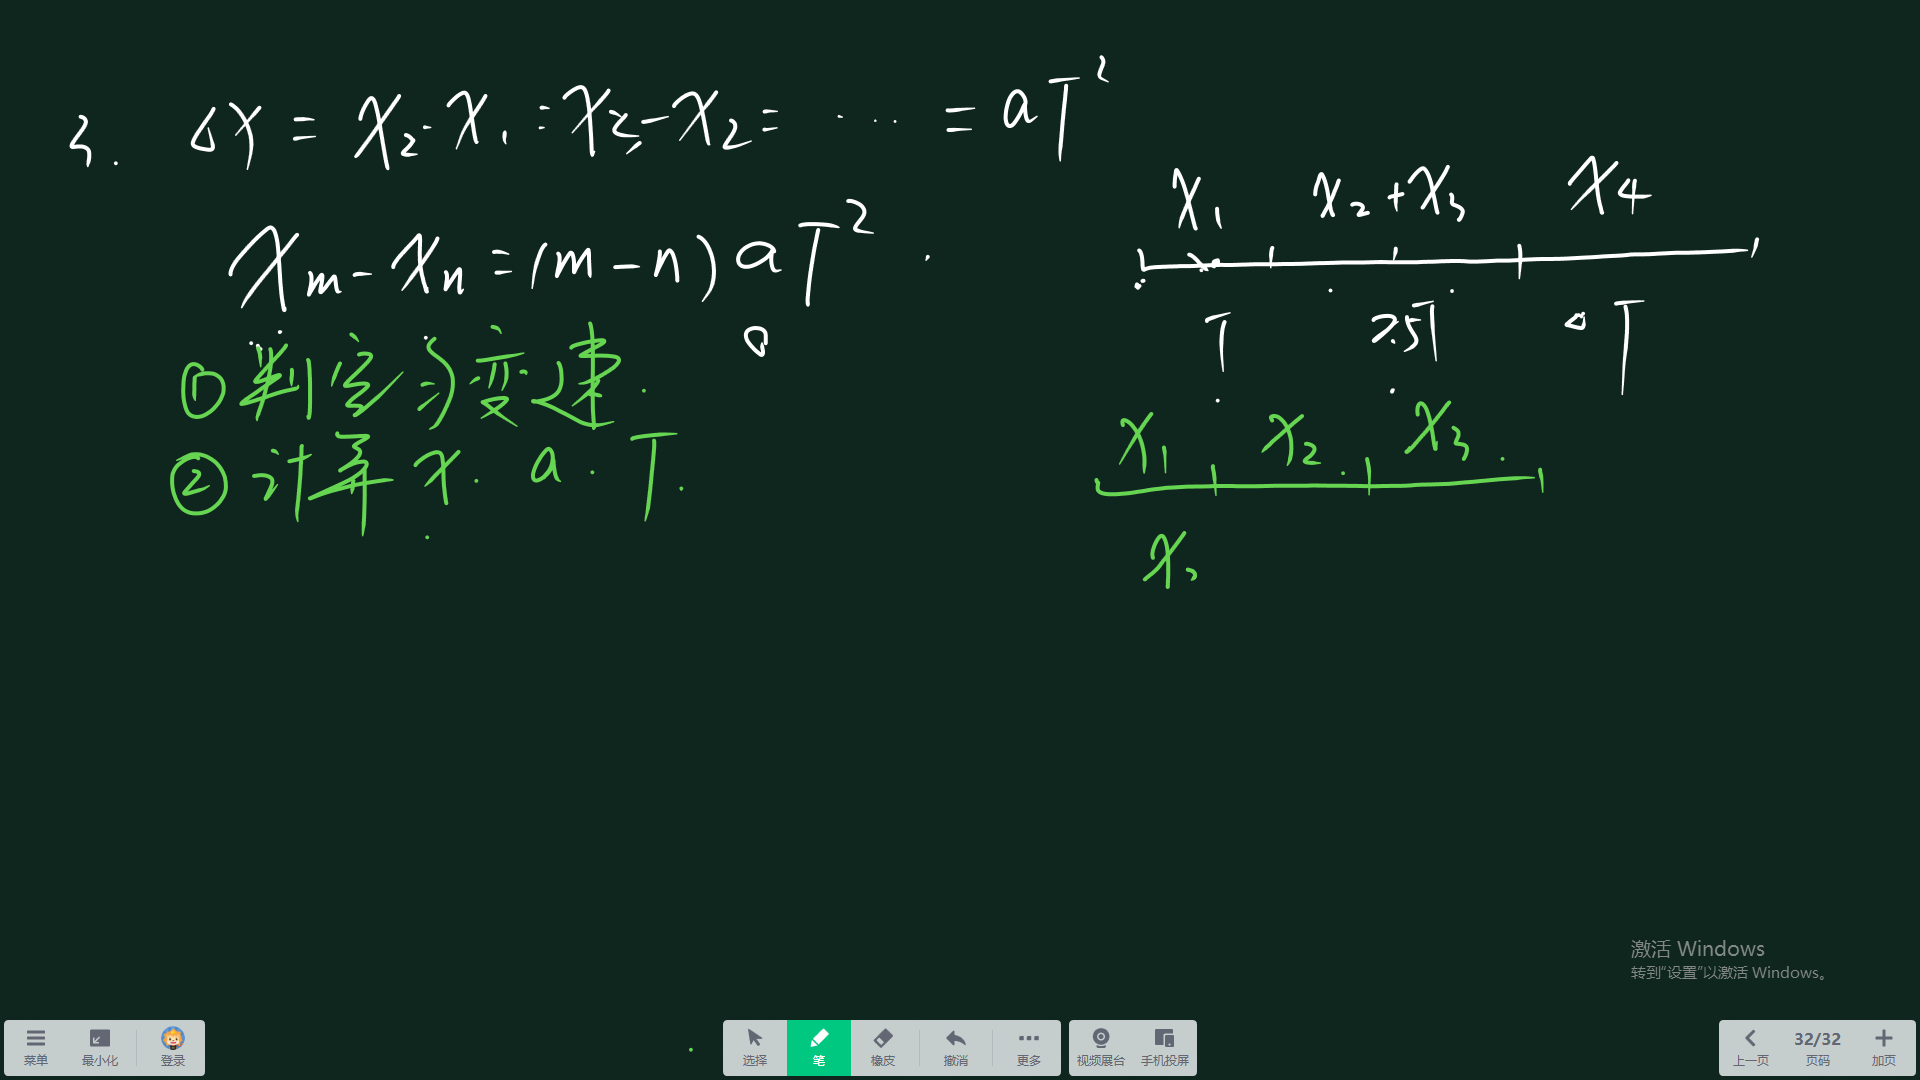 3. ΔX = X₂-X₁ = X₃-X₂ = …… = aT²
Xm-Xn = (m-n)aT²
①判定匀变速.
②计算x. a. T.
X₁ X₂+X₃ X₄
T T
X₁ X₂ X₃
激活 Windows
转到“设置”以激活 Windows。
菜单 最小化 登录
选择 笔 橡皮 撤消 更多
视频展台 手机投屏
上一页 32/32 页码 加页